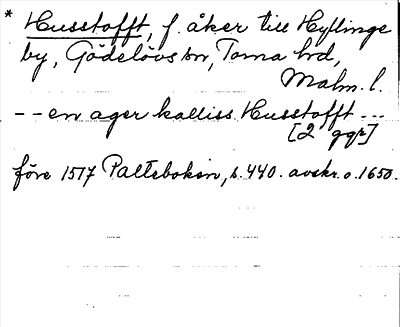 * Husstofft, f. åker till Hyllinge
by, Gödelövs sn, Torna hd,
Malm. l.
-- en ager kalliss Husstofft ---
[2 ggr]
före 1517 Palteboken, s. 440. avskr. o. 1650.